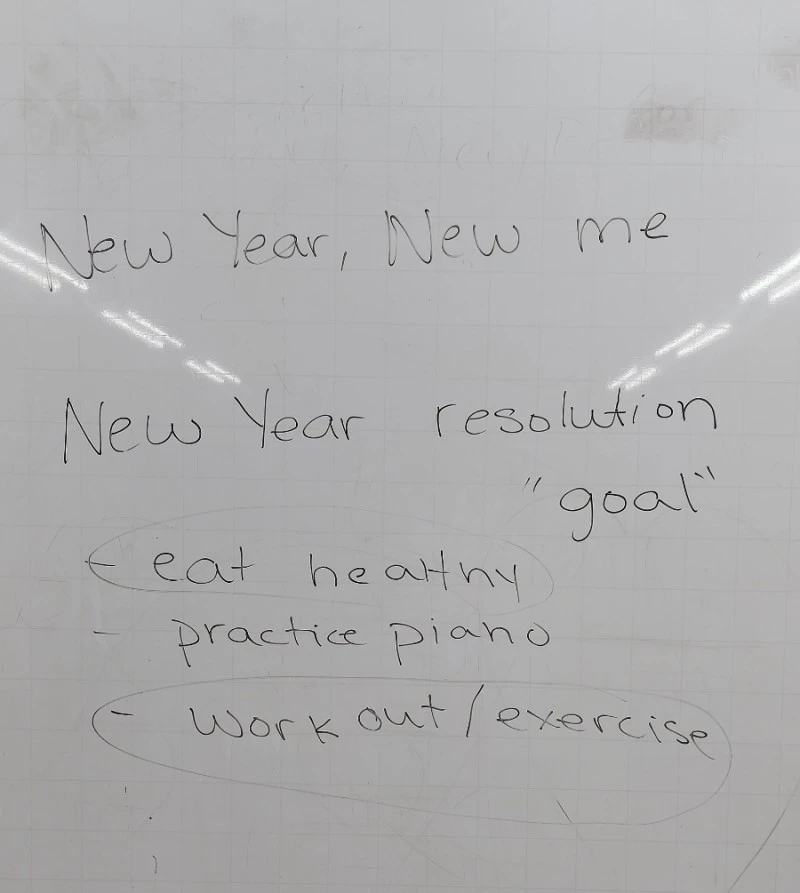 New Year, New me
New Year resolution
"goal"
- eat healthy
- practice piano
- work out/exercise